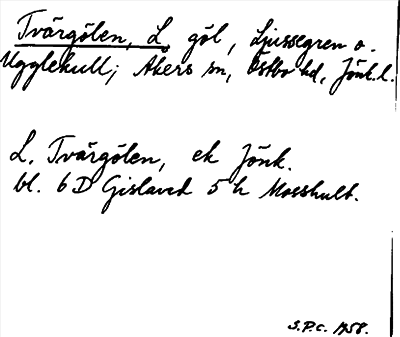 Tvärgölen, L göl, Ljussegren o.
Ugglekull; Åkers sn, Östbo hd, Jönk.l.
L. Tvärgölen, ek Jönk.
bl. 6D Gislaved 5h Mosshult.
S.P.C. 1958.